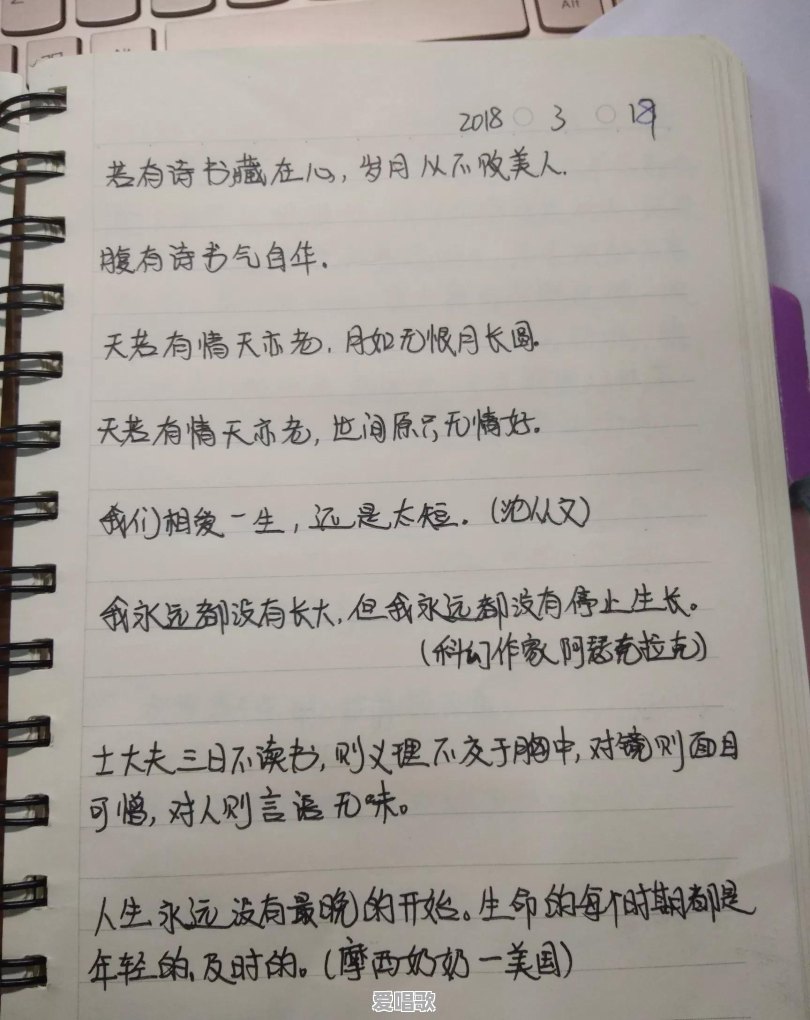 2018 3 18
若有诗书藏在心，岁月从不败美人.
腹有诗书气自华.
天若有情天亦老，月如无恨月长圆.
天若有情天亦老，世间原只无情好.
我们相爱一生，还是太短.（沈从文）
我永远都没有长大，但我永远都没有停止生长。
（科幻作家 阿瑟克拉克）
士大夫三日不读书，则义理不交于胸中，对镜则面目
可憎，对人则言语无味。
人生永远没有最晚的开始。生命的每个时期都是
年轻的、及时的。（摩西奶奶－美国）
爱唱歌